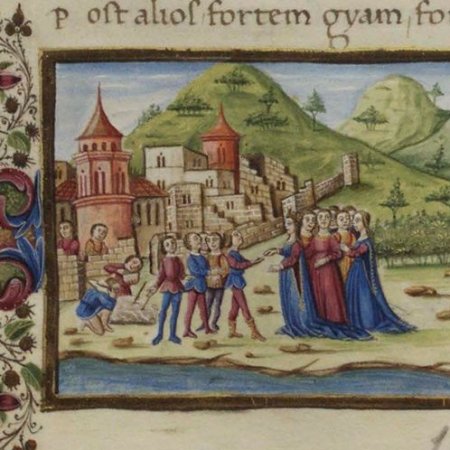 Post alios fortem gyam fo